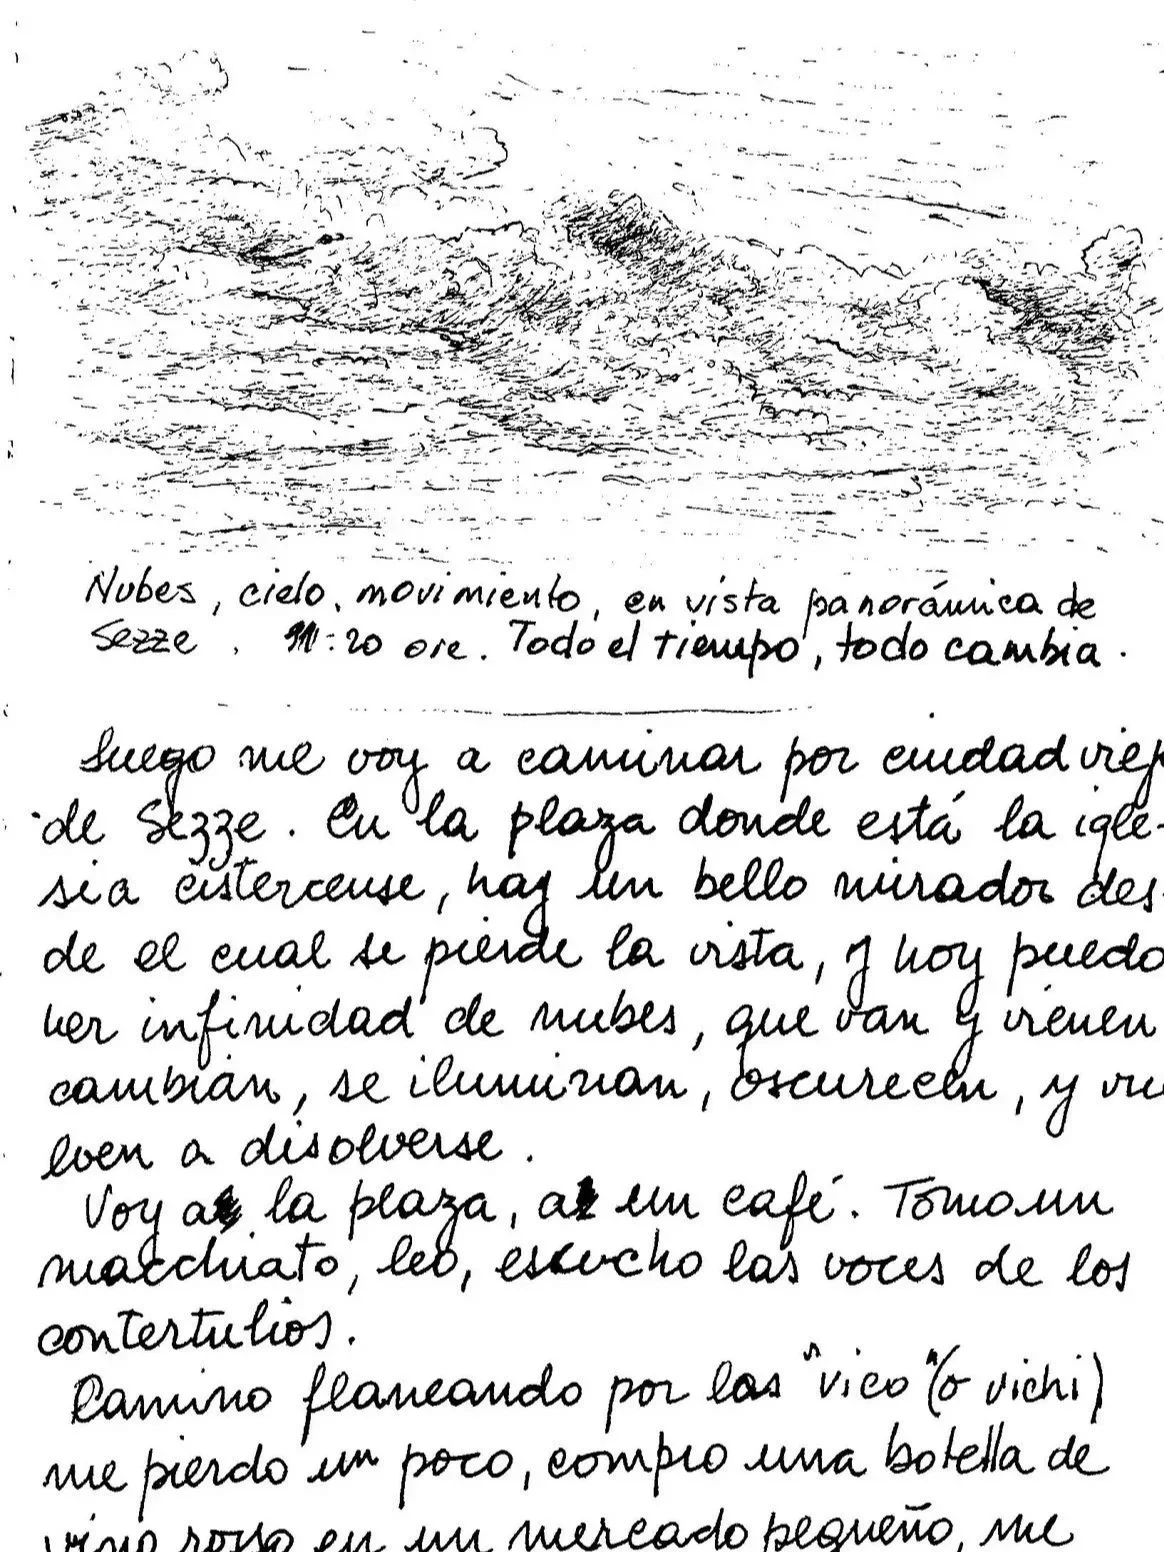 Nubes, cielo, movimiento, en vista panorámica de
Sezze. 11:20 ore. Todo el tiempo, todo cambia.
Luego me voy a caminar por ciudad viej
de Sezze. En la plaza donde está la igle-
sia cistercense, hay un bello mirador des-
de el cual se pierde la vista, y hoy puedo
ver infinidad de nubes, que van y vienen
cambian, se iluminan, oscurecen, y vu
lven a disolverse.
Voy a la plaza, a un café. Tomo un
macchiato, leo, escucho las voces de los
contertulios.
Camino flaneando por los "vico" (o vichi)
me pierdo un poco, compro una botella de
vino rosso en un mercado pequeño, me